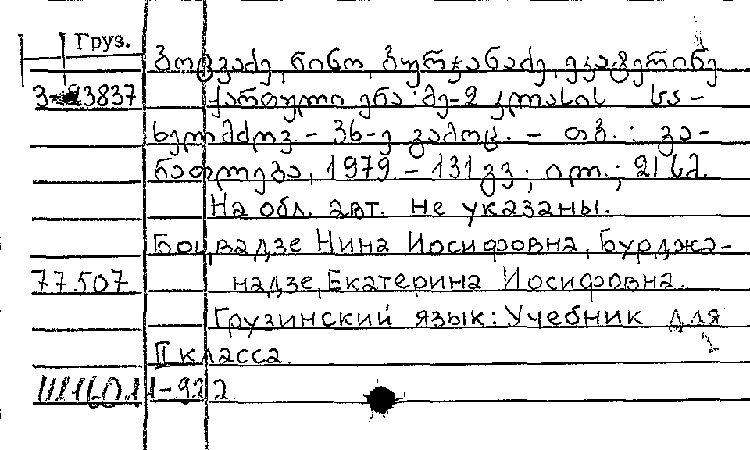 Груз.
ბოცვაძე, ნინო, ბურჯანაძე, ეკატერინე
3-23837 ქართული ენა: მე-2 კლასის სა-
ხელმძღვ. - 36-ე გამოც. - თბ.: გა-
ნათლება, 1979 - 131 გვ.; ილ.; 21 სმ.
На обл. авт. не указаны.
Боцвадзе Нина Иосифовна, Бурджа-
77507 надзе, Екатерина Иосифовна.
Грузинский язык: Учебник для
II класса.